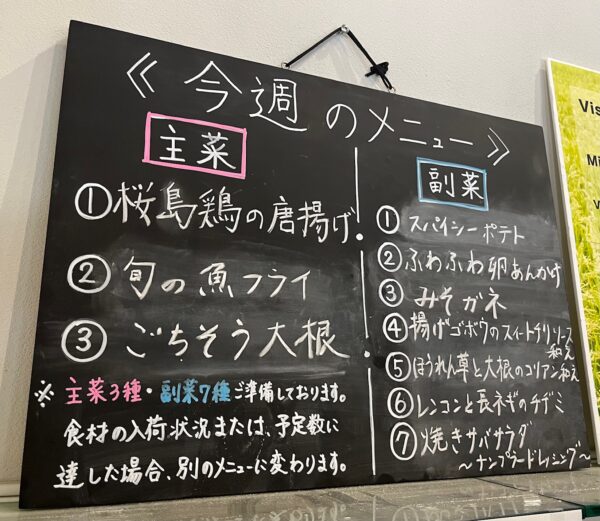 《今週のメニュー》
主菜
①桜島鶏の唐揚げ
②旬の魚フライ
③ごちそう大根
※主菜3種・副菜7種ご準備しております。
食材の入荷状況または、予定数に
達した場合、別のメニューに変わります。
副菜
①スパイシーポテト
②ふわふわ卵あんかけ
③みそガネ
④揚げゴボウのスイートチリソース
和え
⑤ほうれん草と大根のコリアン和え
⑥レンコンと長ネギのチヂミ
⑦焼きサバサラダ
～ナンプラードレッシング～
Vis
Mi